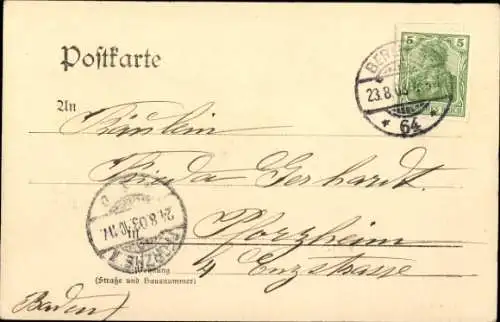 Postkarte
5 5
23.8.03
* 64 *
An
Fräulein
Frieda Gerhardt.
24.8.03.
in Pforzheim
Wohnung
4 Enzstrasse
(Straße und Hausnummer)
(Baden)